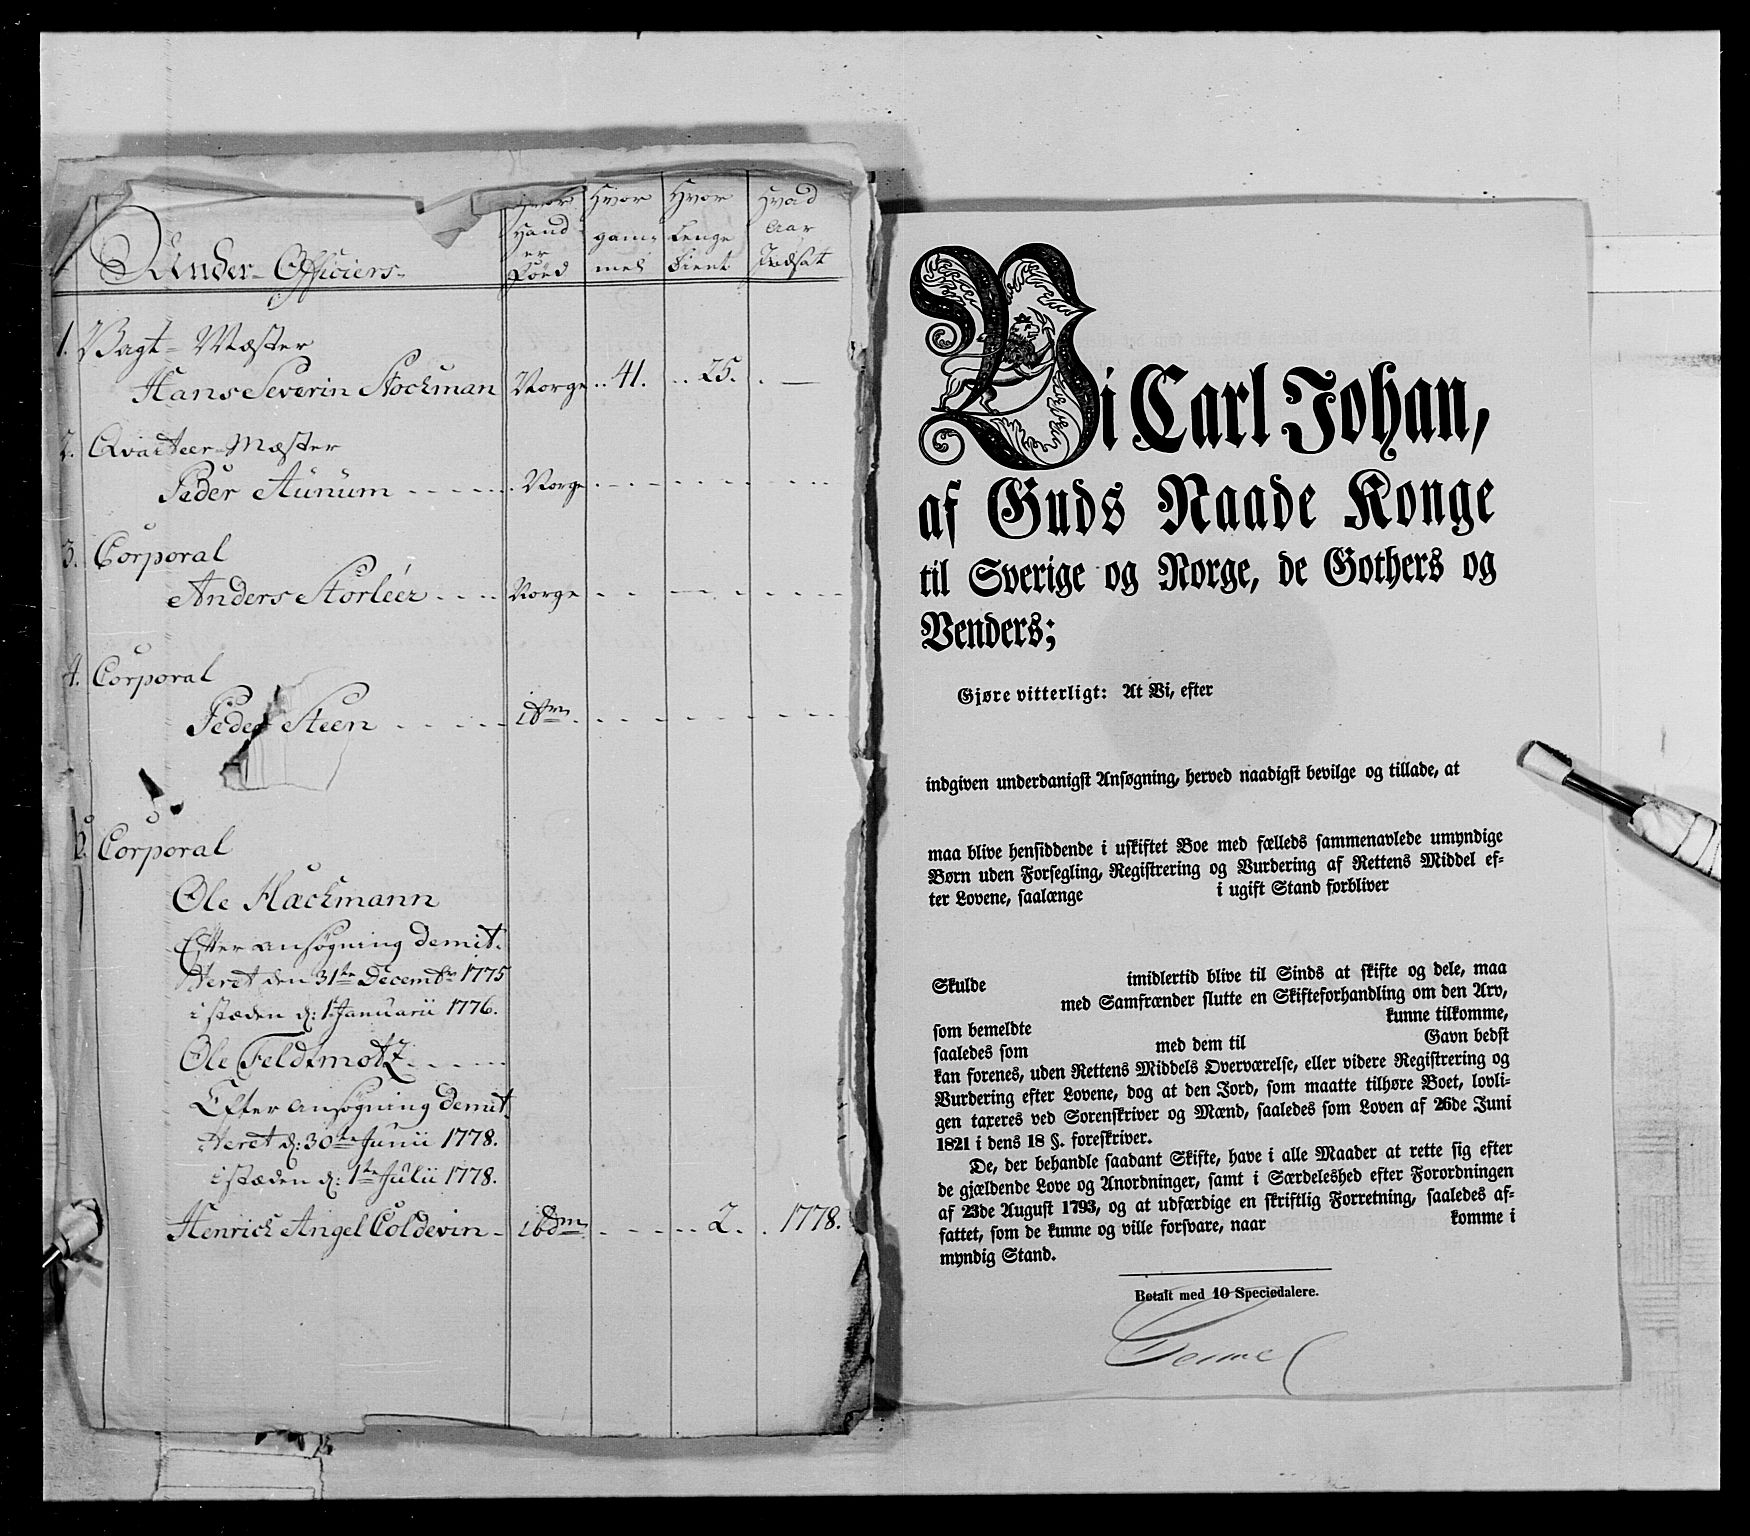 Under-Officiers
Hvor Hand er Föed
Hvor gam= mel
Hvor Lenge Tient
Hvad Aar Indsat
1. Vagt-Mæster
Hans Severin Stockman Norge 41. 25. —
2. Qvarteer-Mæster
Peder Aunum Norge
3. Corporal
Anders Storléer Norge
4. Corporal
Peder Steen idm
Corporal
Ole Hackmann
Efter ansøgning demit.
teret den 31te Decembr 1775
i stæden d: 1 Januarii 1776.
Ole Feldtmotz
Efter ansøgning demit
teret d: 30te Junii 1778.
i stæden d: 1te Julii 1778.
Henrich Angel Coldevin ibdm 2. 1778.
Vi Carl Johan,
af Guds Naade Konge
til Sverige og Norge, de Gothers og
Venders;
Gjøre vitterligt: At Vi, efter
indgiven underdanigst Ansøgning, herved naadigst bevilge og tillade, at
maa blive hensiddende i uskiftet Boe med fælleds sammenavlede umyndige
Børn uden Forsegling, Registrering og Vurdering af Rettens Middel ef=
ter Lovene, saalænge i ugift Stand forbliver
Skulde imidlertid blive til Sinds at skifte og dele, maa
med Samfrænder slutte en Skifteforhandling om den Arv,
som bemeldte kunne tilkomme,
saaledes som med dem til Gavn bedst
kan forenes, uden Rettens Middels Overværelse, eller videre Registrering og
Vurdering efter Lovene, dog at den Jord, som maatte tilhøre Boet, lovli=
gen taxeres ved Sorenskriver og Mænd, saaledes som Loven af 26de Juni
1821 i dens 18 §. foreskriver.
De, der behandle saadant Skifte, have i alle Maader at rette sig efter
de gjældende Love og Anordninger, samt i Særdeleshed efter Forordningen
af 23de August 1793, og at udfærdige en skriftlig Forretning, saaledes af=
fattet, som de kunne og ville forsvare, naar komme i
myndig Stand.
Betalt med 10 Speciedalere.